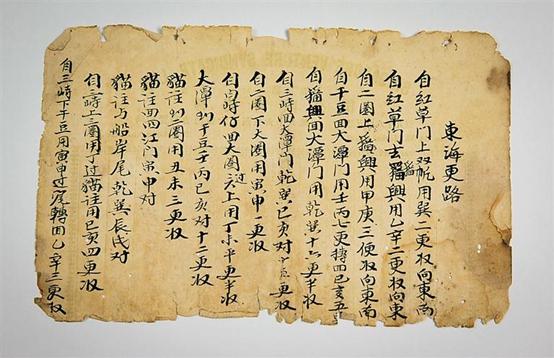 東海更路
自紅草门上双帆用巽二更收向東南
自紅草门去猫興用乙辛二更收向東
自二圈上猫興用甲庚三便收向東南
自干豆回大潭门用壬丙七更轉回巳亥五
自猫興回大潭门用乾巽十六更半收
自三峙回大潭门乾巽巳亥对十五更收
自二圈下大圈用寅申一更收
自白峙仔回大圈上用丁半收
大潭到干豆壬丙巳亥对十二更收
猫注到二圈用丑未三更收
猫注回四江门寅申对
猫注与船岸尾乾巽辰戌对
自三峙上三圈用丁过猫注用巳亥四更收
自三峙下干豆用寅申过尾轉回乙辛三更收